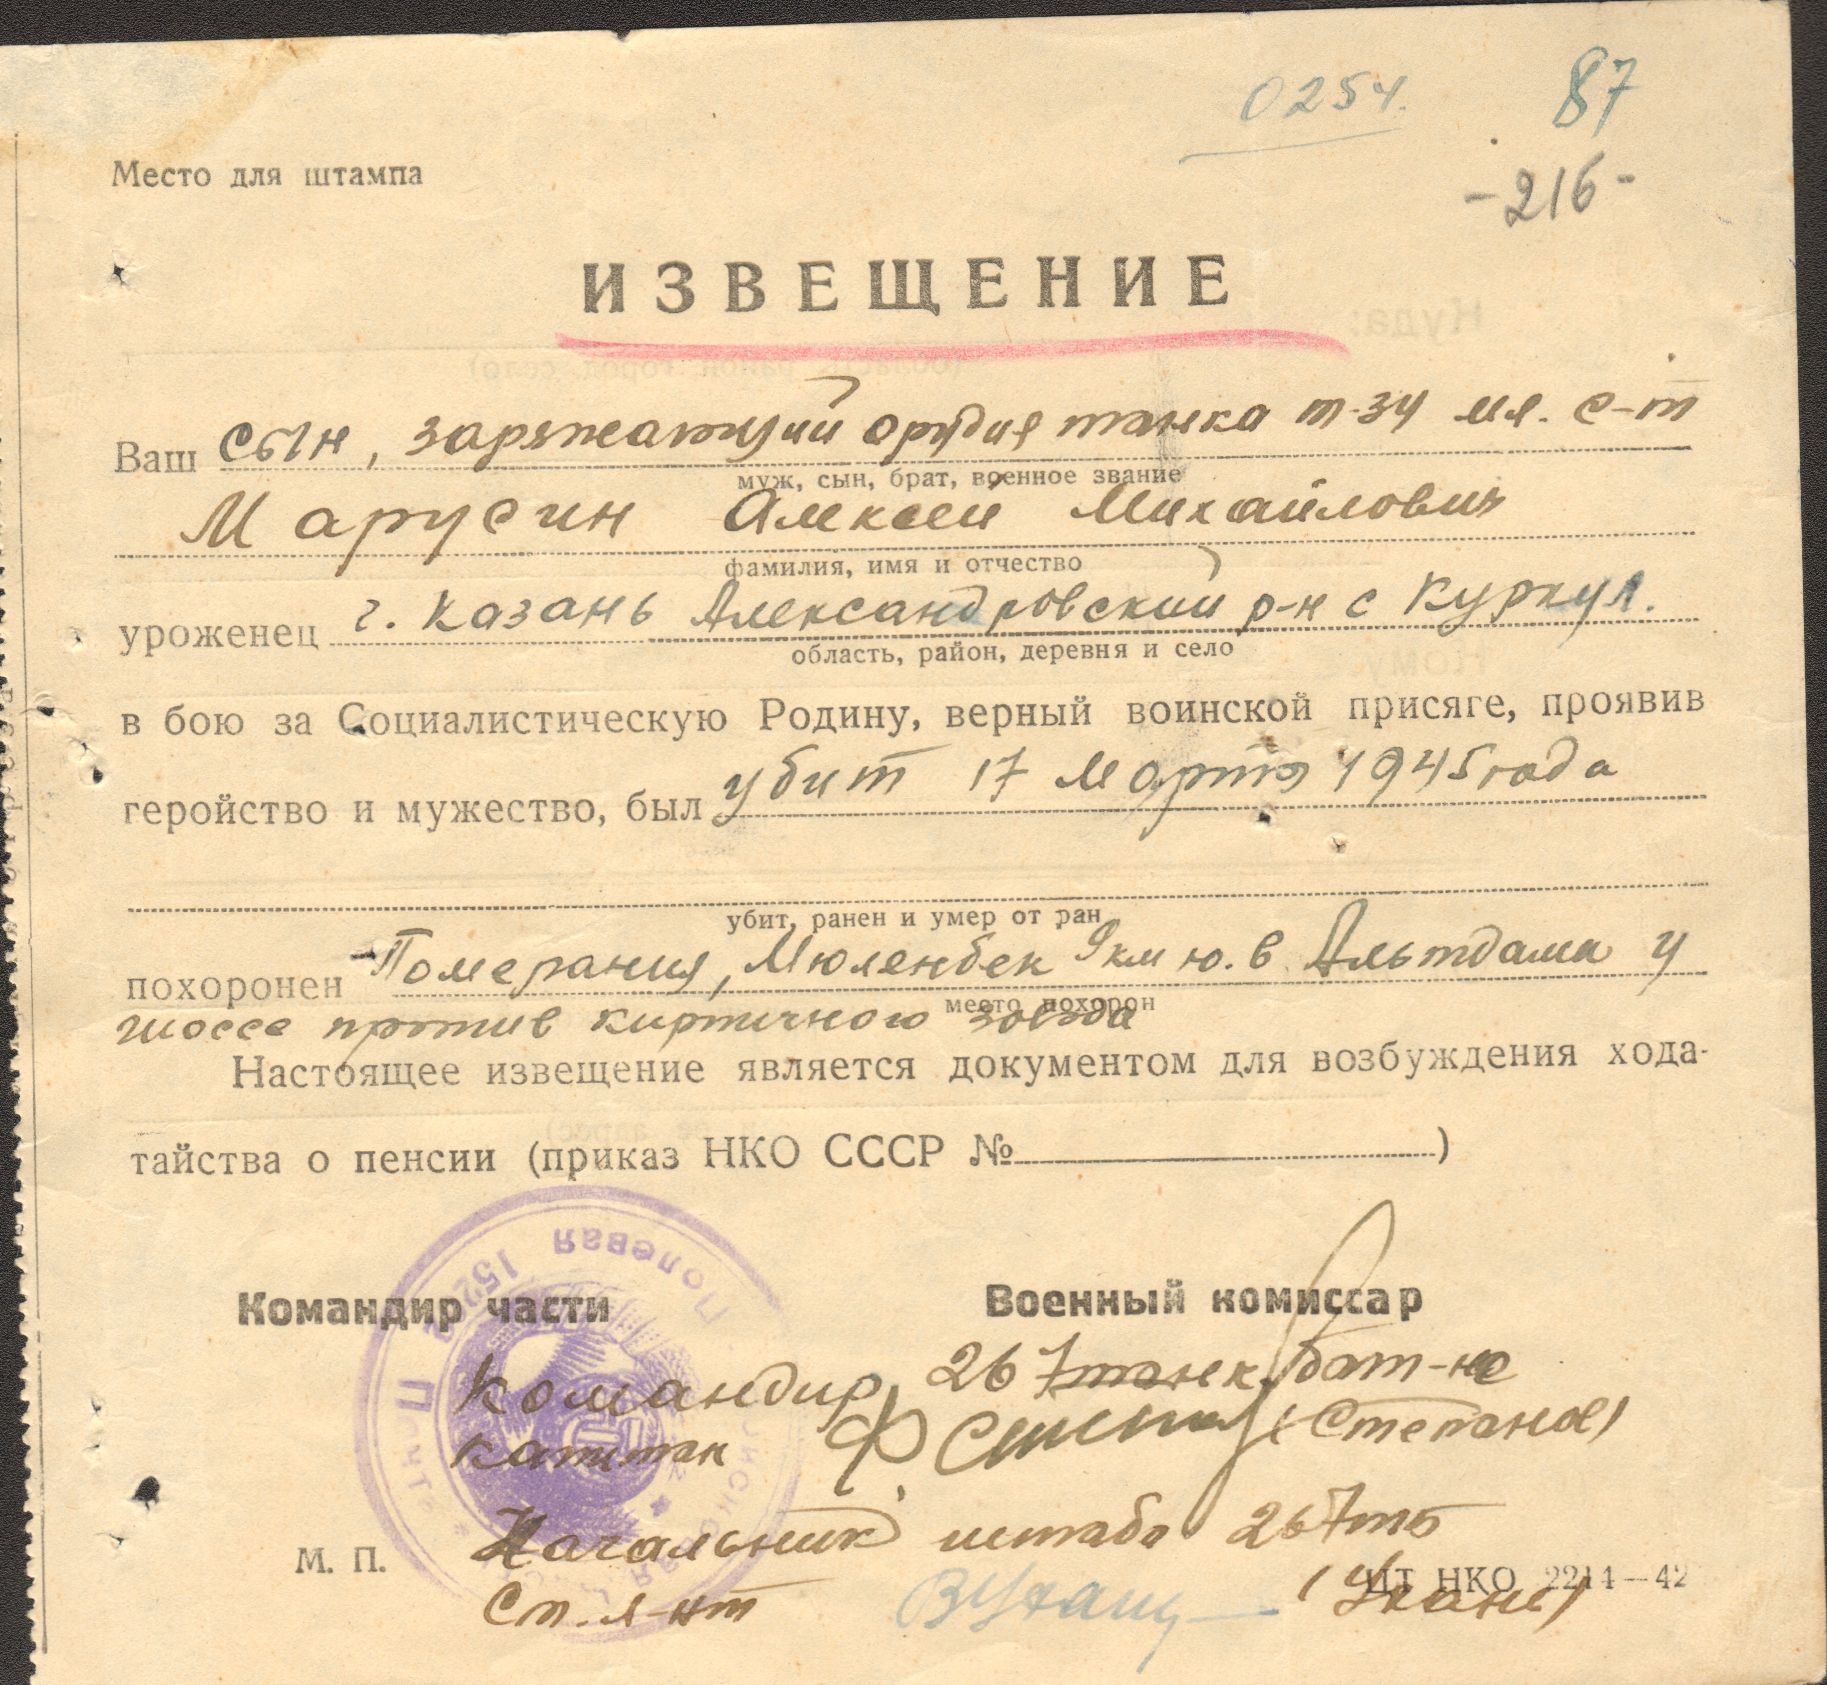 0254.
87
-216-
Место для штампа
ИЗВЕЩЕНИЕ
Ваш сын, заряжающий орудия танка т-34 мл. с-т
муж, сын, брат, военное звание
Марусин Алексей Михайлович
фамилия, имя и отчество
уроженец г. Казань Александровский р-н с Куркул.
область, район, деревня и село
в бою за Социалистическую Родину, верный воинской присяге, проявив
геройство и мужество, был убит 17 марта 1945 года
убит, ранен и умер от ран
похоронен Померания, Мюленбек 9 км ю.в Альтдама у
место похорон
шоссе против кирпичного завода
Настоящее извещение является документом для возбуждения хода-
тайства о пенсии (приказ НКО СССР №                )
Полевая
Почта
Командир части Военный комиссар
Командир 267 танк. бат-на
капитан (Степанов)
Начальник штаба 267 тб
М. П.
Ст. л-нт
ЦТ НКО 2214—42